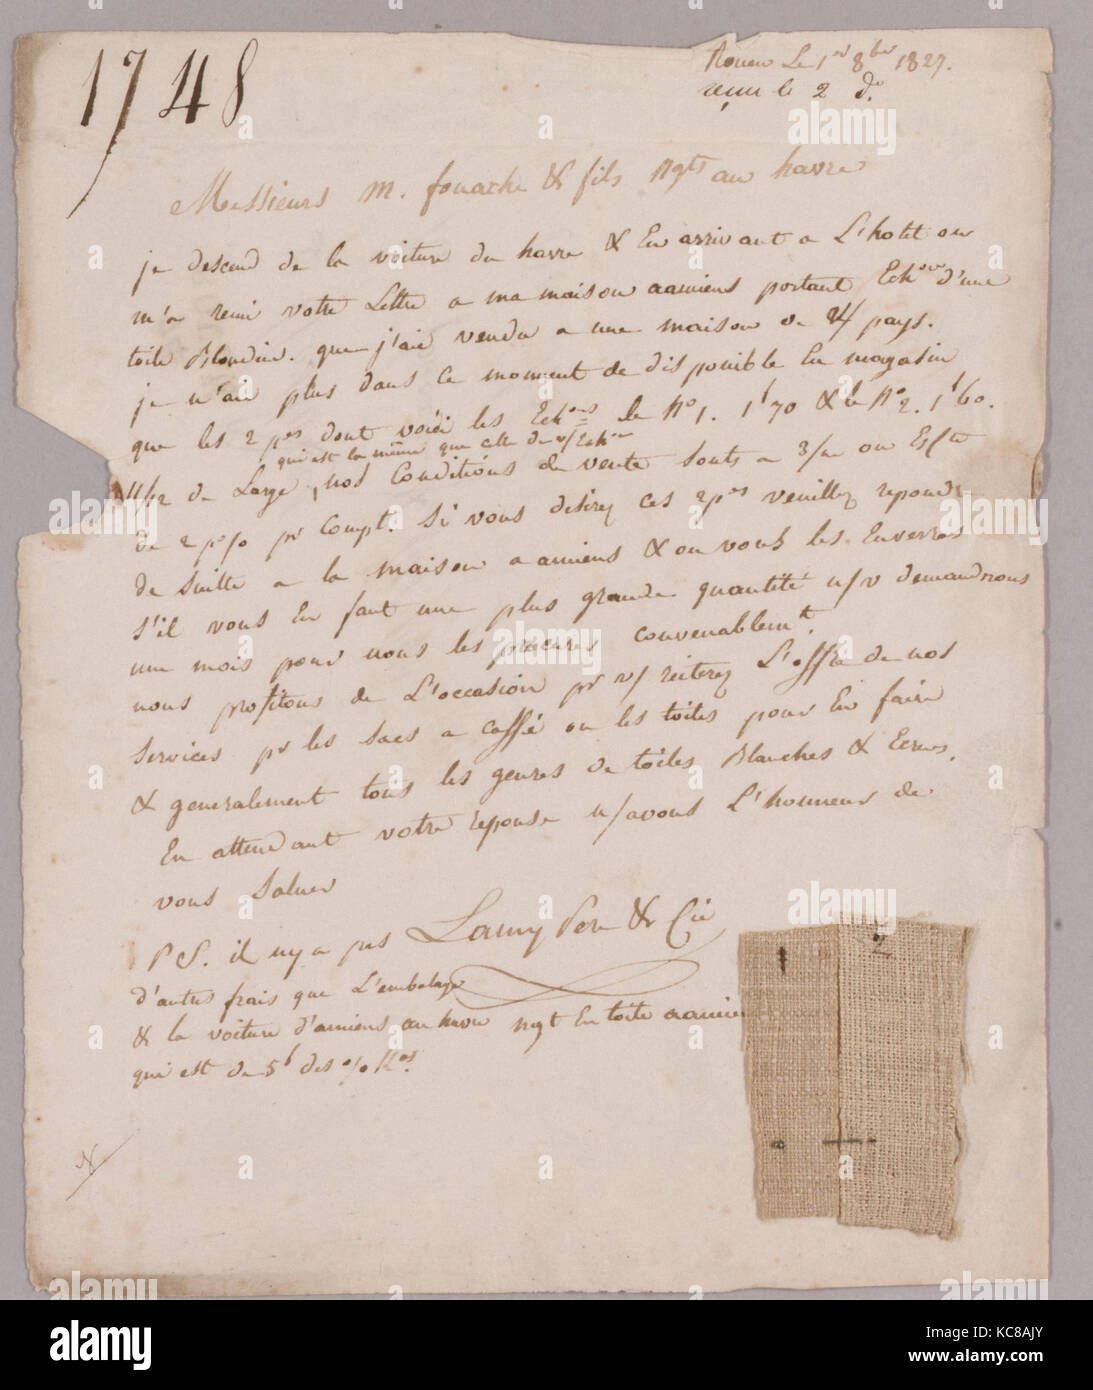 1748
Rouen Le 1er 8bre 1827.
reçue le 2 do.
Messieurs M. fouache & fils Ngts au havre
je descend de la voiture du havre & En arrivant a L'hotel on
m'a remi votre Lettre a ma maison aamiens portant Echon d'une
toile Blondin. que j'ai vendu a une maison de pays.
je n'ai plus dans ce moment de disponible En magasin
que les 2 pes dont voici les Echons le No 1. 1f70 & le No 2. 1f60.
qui est la même que celle de v/Echon
11/12 de Large, nos Conditions de vente sont a 3/m ou Escte
de 2 p% pr Compt. Si vous desirez ces 2 pes veuillez repondre
de suitte a la maison a amiens & on vous les Enverras
s'il vous En faut une plus grande quantité n/v demandrons
une mois pour nous les procurer convenablemt.
nous profitons de L'occasion pr v/ reiterez L'offre de nos
services pr les sacs a caffé ou les toiles pour En faire
& generalement tous les genres de toiles Blanches & Ecrues.
En attendant votre reponse n/avons L'honneur de
vous Saluer
Lamy Pere & Cie
PS. il ny a pas
d'autres frais que L'embalage
& la voiture d'amiens au havre ngt En toile aamiens
qui est de 5f des %Kos.
1
2
N
alamy
Image ID: KC8AJY
www.alamy.com